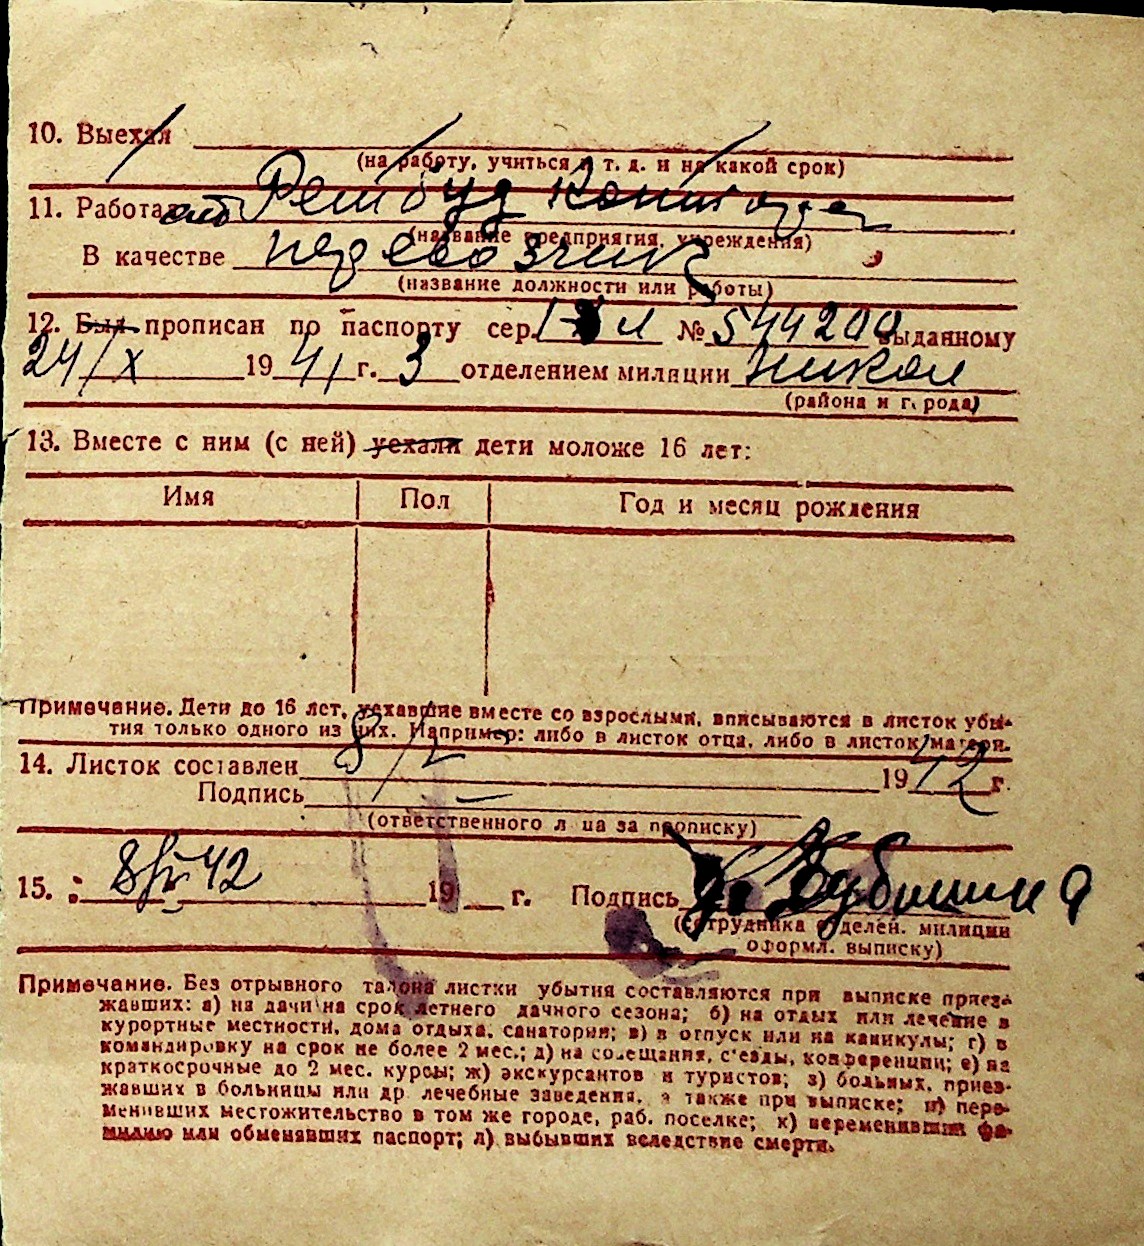 10. Выехал
(на работу, учиться и т. д. и на какой срок)
11. Работал
(название предприятия, учреждения)
В качестве перевозчик
(название должности или работы)
12. Был прописан по паспорту сер. № 544200 выданному
24/X 1941 г. 3 отделением милиции Никол
(района и города)
13. Вместе с ним (с ней) уехали дети моложе 16 лет:
Имя Пол Год и месяц рождения
Примечание. Дети до 16 лет, уехавшие вместе со взрослыми, вписываются в листок убы-
тия только одного из них. Например: либо в листок отца, либо в листок матери.
14. Листок составлен 1942 г.
Подпись
(ответственного лица за прописку)
15. 42 19 г. Подпись
(сотрудника отделен. милиции
оформл. выписку)
Примечание. Без отрывного талона листки убытия составляются при выписке приез-
жавших: а) на дачи на срок летнего дачного сезона; б) на отдых или лечение в
курортные местности, дома отдыха, санатории; в) в отпуск или на каникулы; г) в
командировку на срок не более 2 мес.; д) на совещания, с'езды, конференции; е) на
краткосрочные до 2 мес. курсы; ж) экскурсантов и туристов; з) больных, приез-
жавших в больницы или др. лечебные заведения, а также при выписке; и) пере-
менивших местожительство в том же городе, раб. поселке; к) переменивших фа-
милию или обменявших паспорт; л) выбывших вследствие смерти.